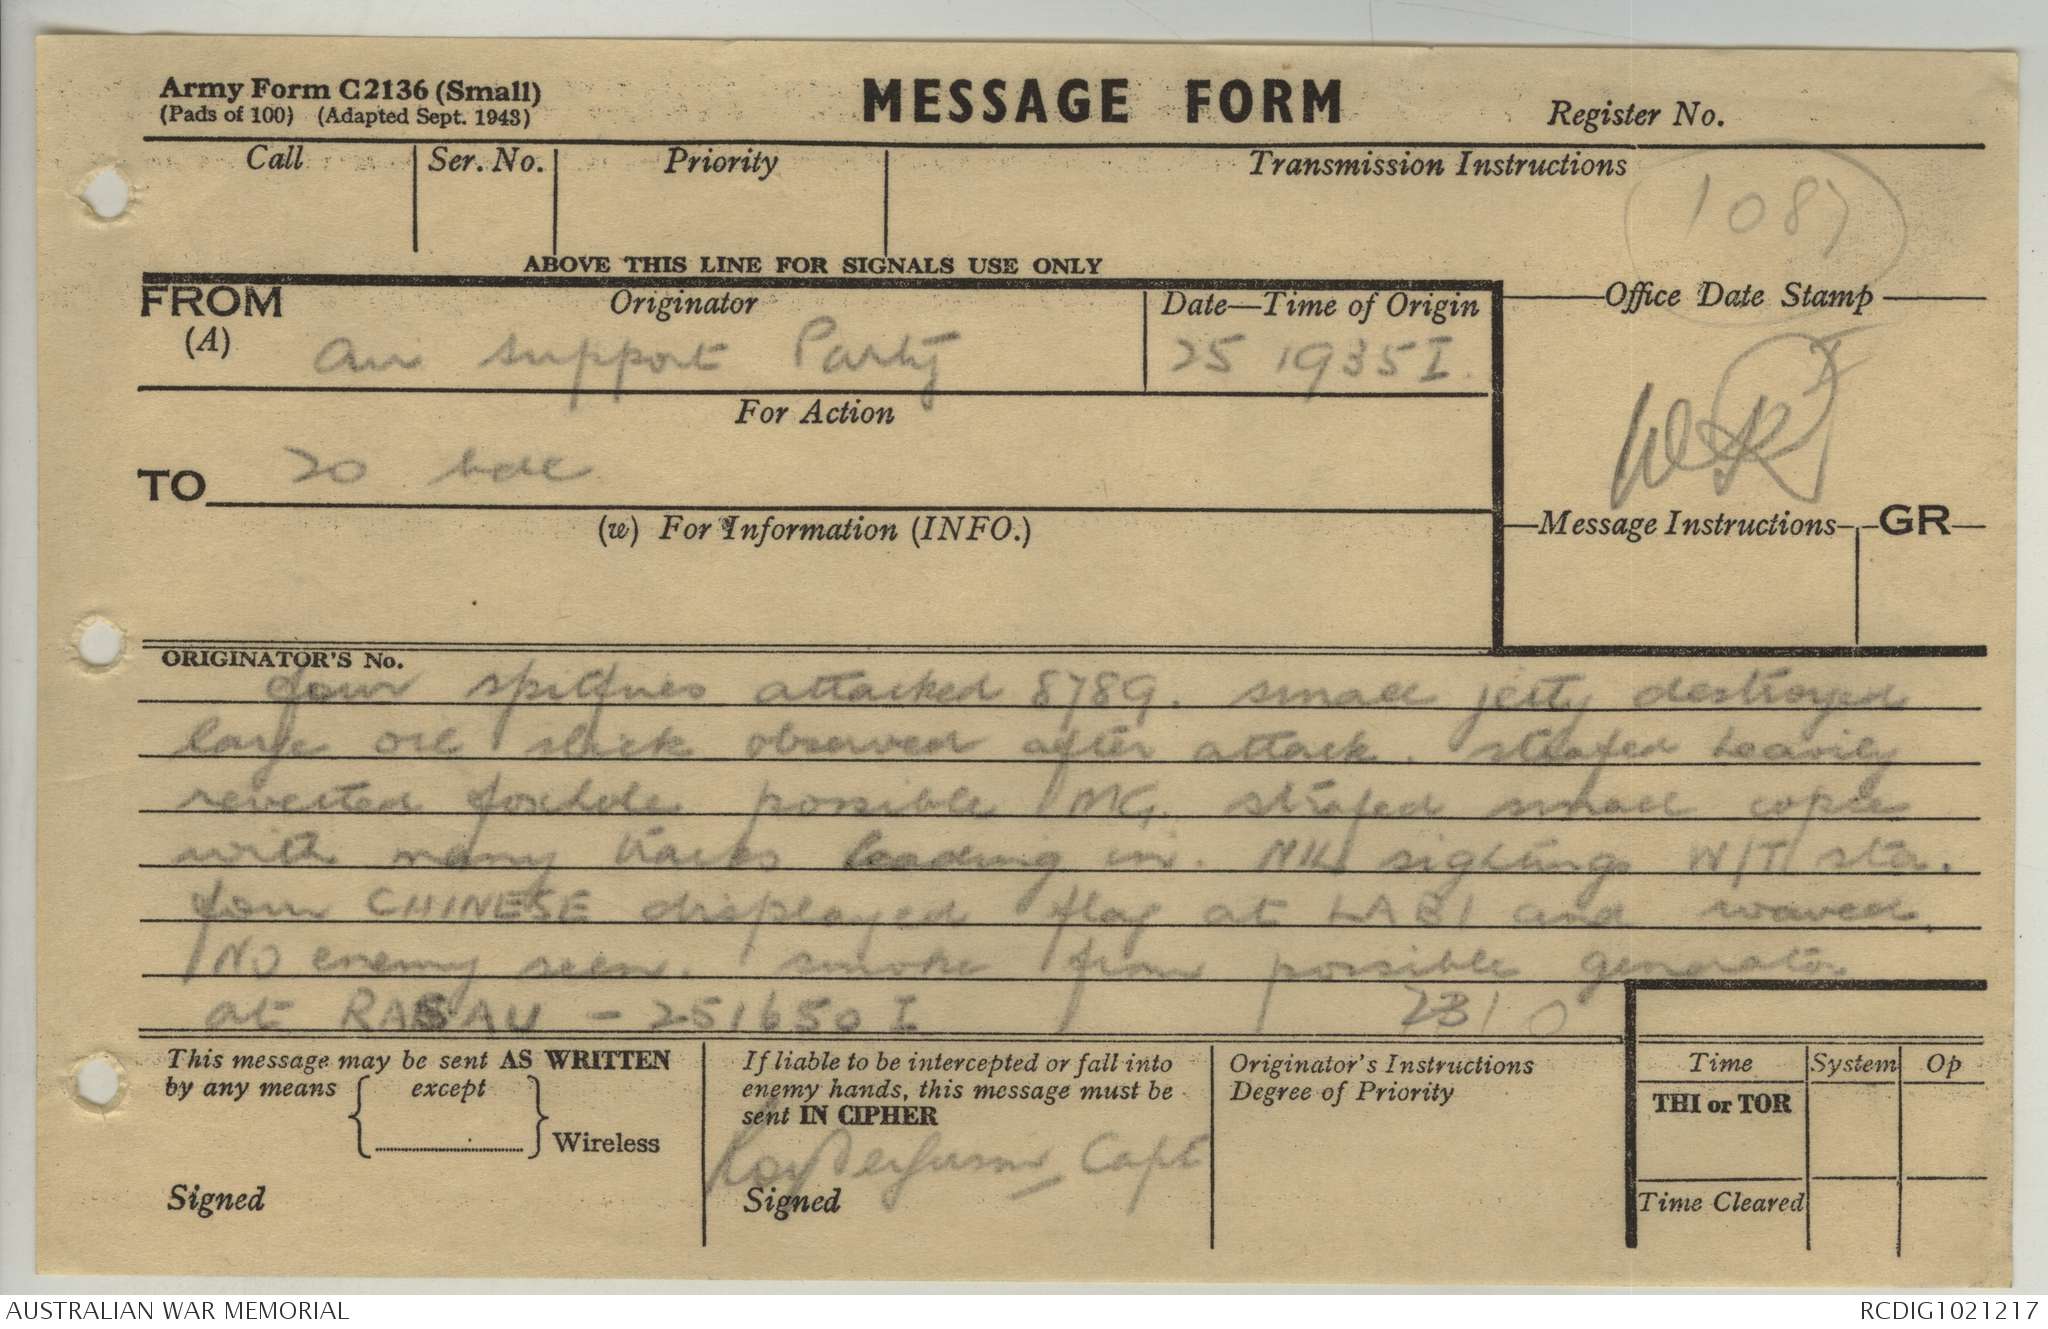 Army Form C2136 (Small)
(Pads of 100) (Adapted Sept. 1943)
MESSAGE FORM
Register No.
Call
Ser. No.
Priority
Transmission Instructions
1087
ABOVE THIS LINE FOR SIGNALS USE ONLY
FROM
(A)
Originator
Air support Party
Date—Time of Origin
25 1935I.
Office Date Stamp
For Action
TO
20 bde
(w) For Information (INFO.)
Message Instructions
GR
ORIGINATOR'S No.
four spitfires attacked 8789. small jetty destroyed
large oil slick observed after attack. strafed heavily
revetted foxhole possible MG. strafed small copse
with many tracks leading in. sightings W/T sta.
four CHINESE displayed flag at LABI and waved.
NO enemy seen. smoke from possible generator
at RASAU - 251650 I 2310
This message may be sent AS WRITTEN
by any means except
Wireless
Signed
If liable to be intercepted or fall into
enemy hands, this message must be
sent IN CIPHER
Capt
Signed
Originator's Instructions
Degree of Priority
Time
System
Op
THI or TOR
Time Cleared
AUSTRALIAN WAR MEMORIAL
RCDIG1021217